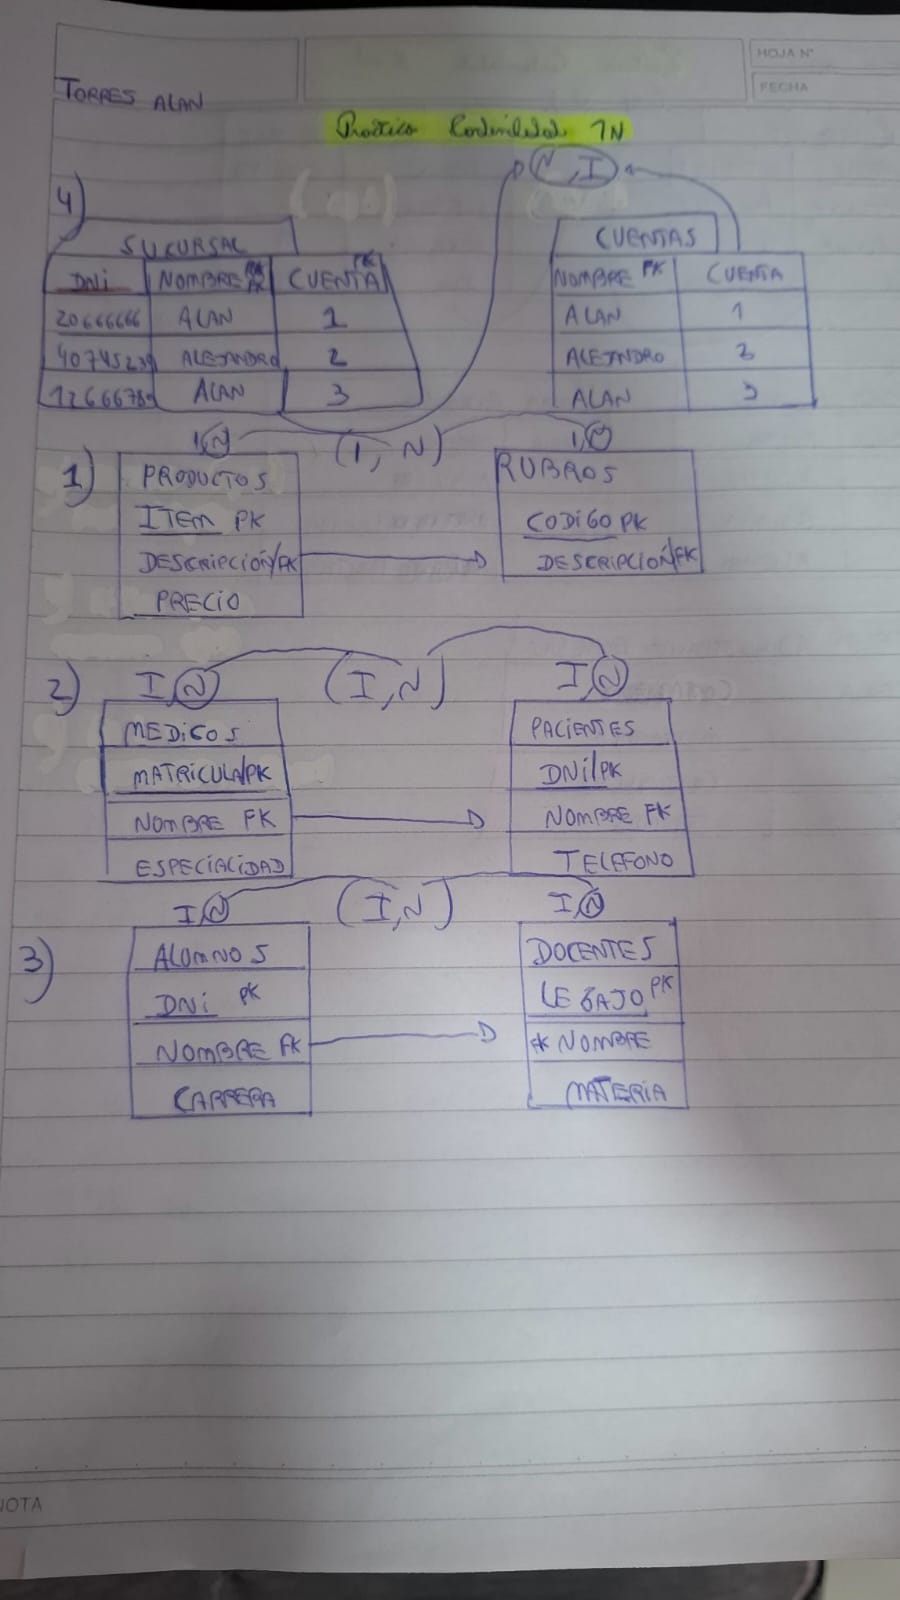 HOJA N°
FECHA
TORRES ALAN
Practico Cardinalidad 1N
N, I
4)
SUCURSAL
DNi NOMBRE CUENTA PK
20666666 ALAN 1
ALEJANDRO 2
ALAN 3
CUENTAS
NOMBRE PK CUENTA
ALAN 1
ALEJNDRO 2
ALAN 3
1)
1,N (1, N) 1,N
PRODUCTOS
ITEM PK
DESCRIPCIÓN/FK
PRECIO
RUBROS
CODIGO PK
DESCRIPCIÓN/FK
2)
I,N (I,N) I,N
MEDICOS
MATRICULA/PK
NOMBRE FK
ESPECIALIDAD
PACIENTES
DNI/PK
NOMBRE FK
TELEFONO
3)
I,N (I,N) I,N
ALUMNOS
DNi PK
NOMBRE FK
CARRERA
DOCENTES
LEGAJO PK
FK NOMBRE
MATERIA
NOTA